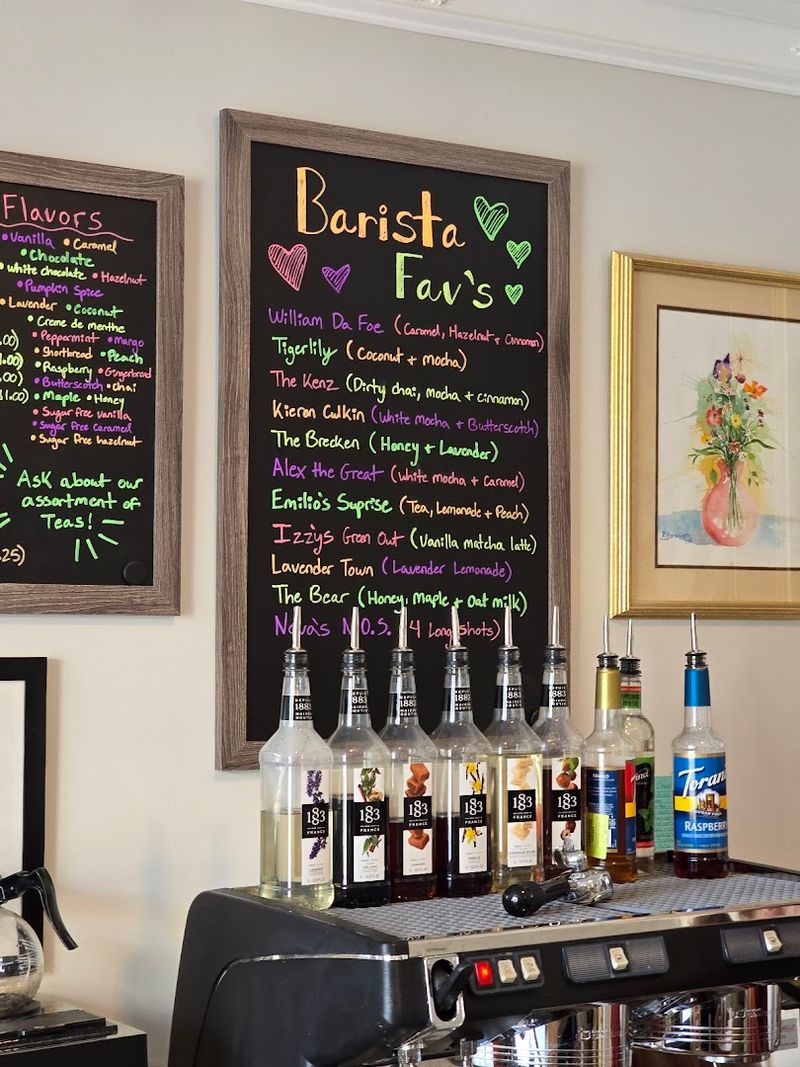 Flavors
• Vanilla • Caramel
• Chocolate
• white chocolate • Hazelnut
• Pumpkin Spice
• Lavender • Coconut
• Creme de menthe
• Peppermint • mango
• Shortbread • Peach
• Raspberry • Gingerbread
• Butterscotch • chai
• Maple • Honey
• Sugar free vanilla
• Sugar free caramel
• Sugar free hazelnut
Ask about our
assortment of
Teas!
Barista
Fav's
William Da Foe (Caramel, Hazelnut + Cinnamon)
Tigerlily (Coconut + mocha)
The Kenz (Dirty chai, mocha + cinnamon)
Kieran Culkin (white mocha + Butterscotch)
The Brecken (Honey + Lavender)
Alex the Great (white mocha + Caramel)
Emilio's Suprise (Tea, Lemonade + Peach)
Izzy's Green Out (Vanilla matcha latte)
Lavender Town (Lavender Lemonade)
The Bear (Honey, Maple + Oat milk)
Nova's N.O.S. 4 Long shots)
1883
1883
1883
1883
1883
1883
183
FRANCE
183
FRANCE
183
FRANCE
183
FRANCE
183
FRANCE
183
FRANCE
Torani
RASPBERRY